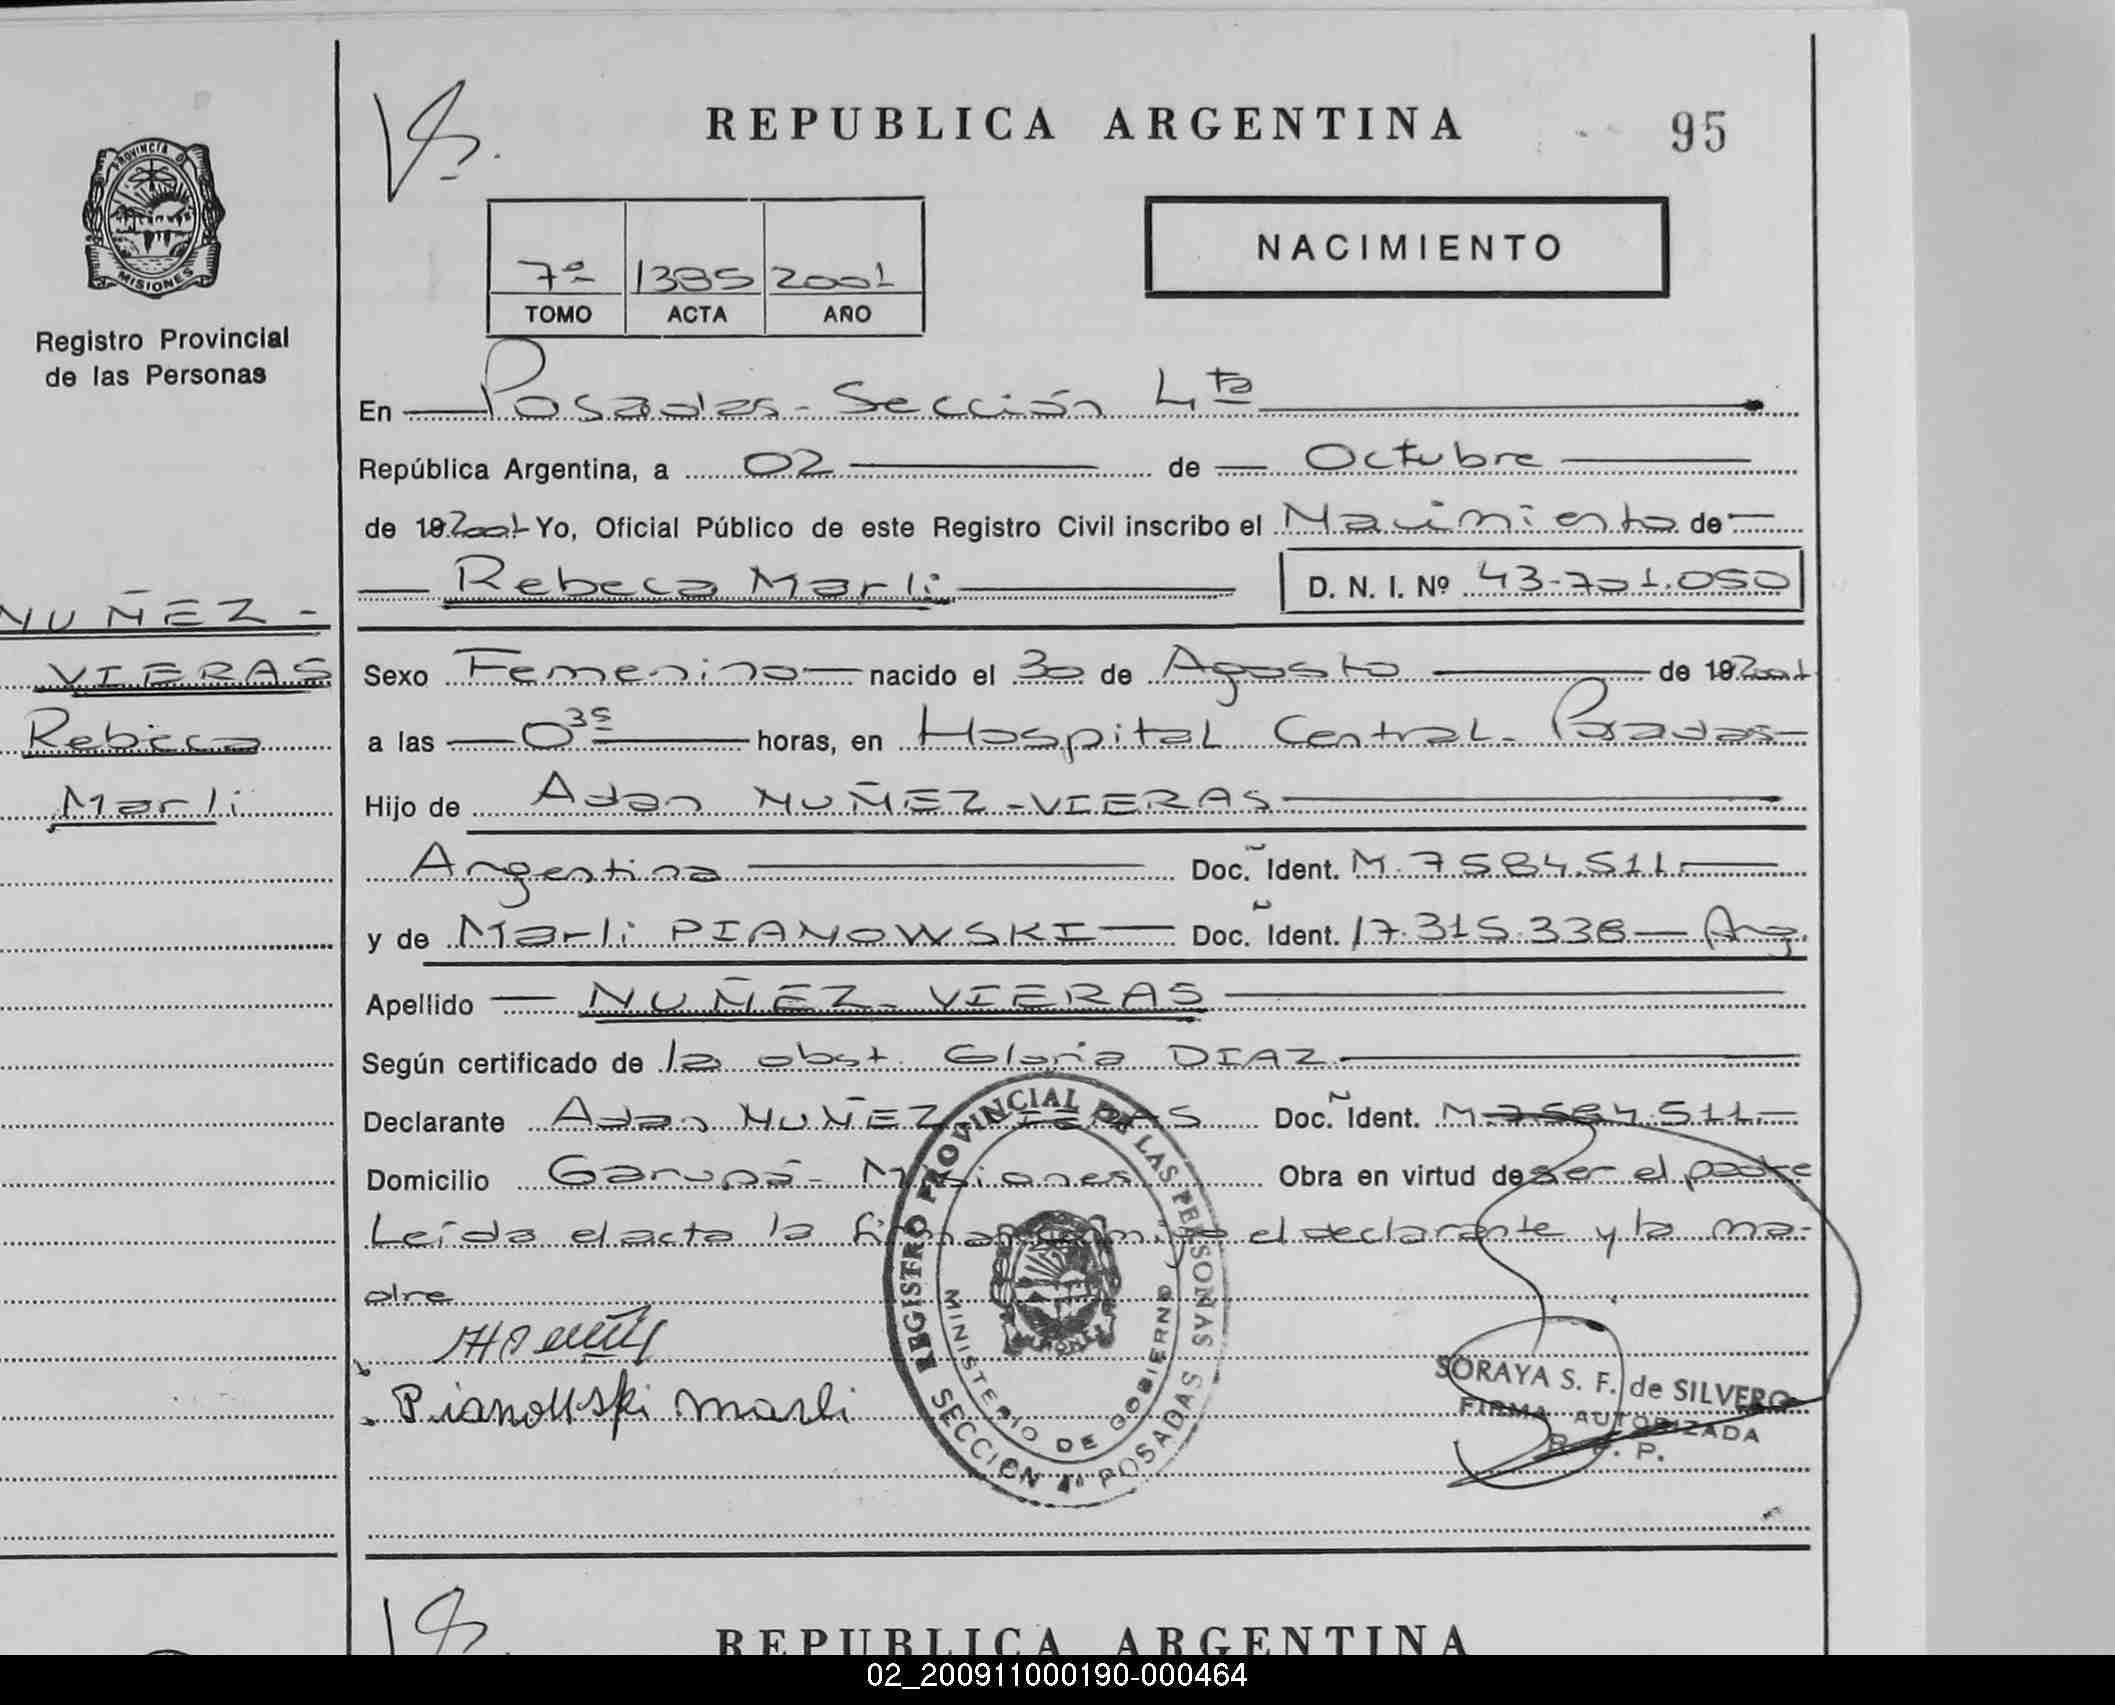 REPUBLICA ARGENTINA
95
PROVINCIA D
MISIONES
Registro Provincial
de las Personas
7º 1395 2001
TOMO ACTA AÑO
NACIMIENTO
En Posadas - Sección 4ta
República Argentina, a 02 de Octubre
de 192001 Yo, Oficial Público de este Registro Civil inscribo el Nacimiento de
Rebeca Marli D. N. I. Nº 43-701.050
NUÑEZ -
VIERAS
Rebeca
Marli
Sexo Femenino nacido el 30 de Agosto de 192001
a las 0 35 horas, en Hospital Central - Posadas
Hijo de Adan NUÑEZ-VIERAS
Argentina Doc. Ident. M. 7584.511
y de Marli PIANOWSKI Doc. Ident. 17.315.338 Arg.
Apellido NUÑEZ - VIERAS
Según certificado de la obst. Gloria DIAZ
Declarante Adan NUÑEZ VIERAS Doc. Ident. M.7584.511
Domicilio Garupá - Misiones Obra en virtud de ser el padre
Leída el acta la firman conmigo el declarante y la ma-
dre
Pianowski Marli
REGISTRO PROVINCIAL DE LAS PERSONAS
MINISTERIO DE GOBIERNO
SECCION 4ª POSADAS
SORAYA S. F. de SILVERO
FIRMA AUTORIZADA
R. P. P.
REPUBLICA ARGENTINA
02_200911000190-000464